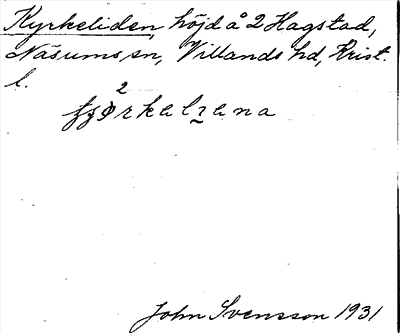 Kyrkeliden, höjd å 2 Hagstad,
Näsums sn, Villands hd, Krist.
l.
John Svensson 1931